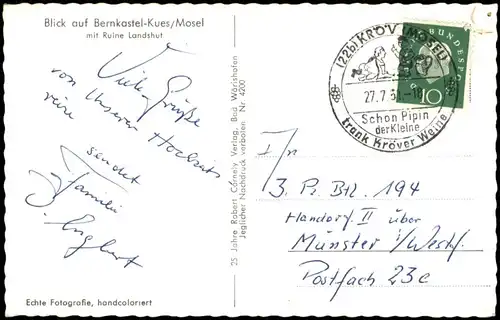 Blick auf Bernkastel-Kues/Mosel
mit Ruine Landshut
Viele Grüße
von unserer Hochzeits
reise
sendet
Familie
Englert
Echte Fotografie, handcoloriert
25 Jahre Robert Cornely Verlag, Bad Wörishofen
Jeglicher Nachdruck verboten Nr 4200
(22b) KRÖV (MOSEL)
27.7.
Schon Pipin
der Kleine
trank Kröver Weine
BUNDESPOST
10
3. Pz. Btl. 194
Handorf II über
Münster i/Westf.
Postfach 23c